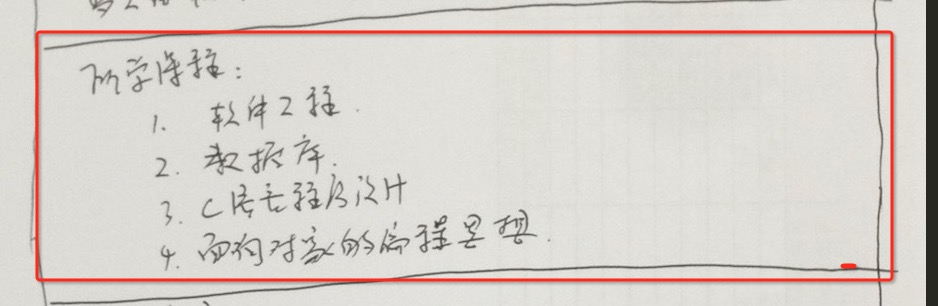 所学课程：
1. 软件工程.
2. 数据库.
3. C语言程序设计
4. 面向对象的编程思想.